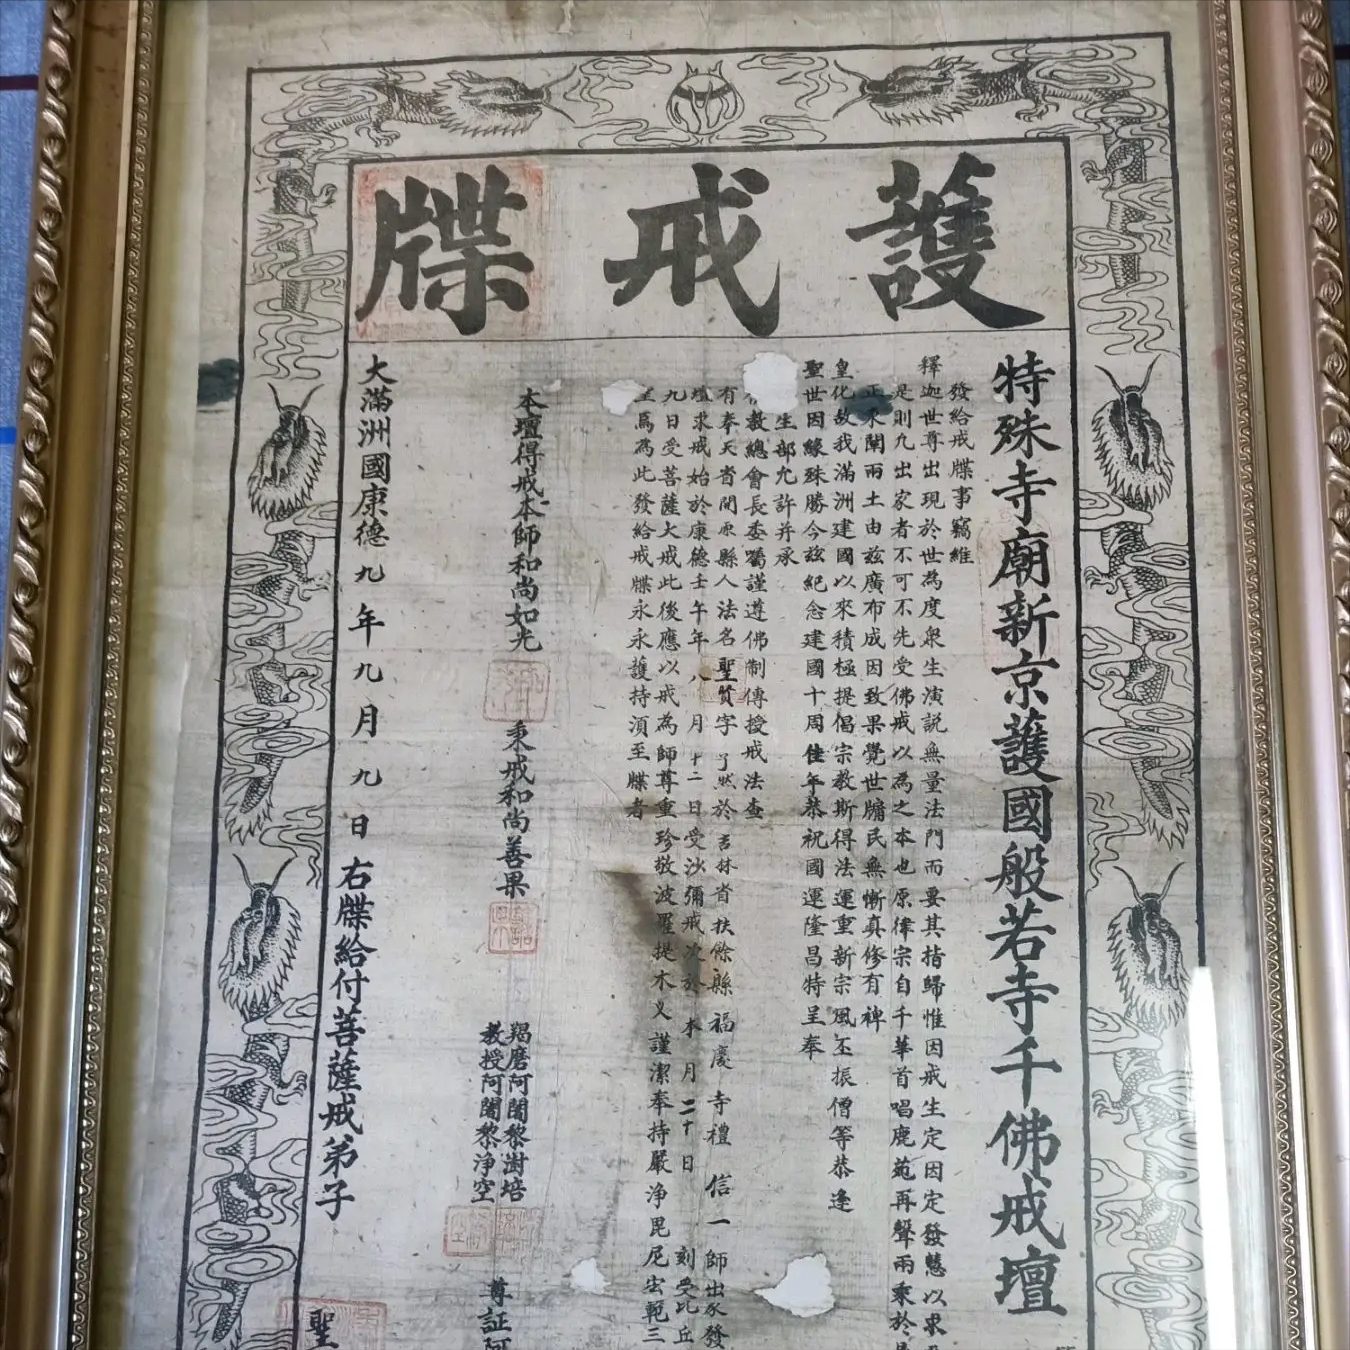 護戒牒
特殊寺廟新京護國般若寺千佛戒壇
發給戒牒事竊維
釋迦世尊出現於世為度衆生演説無量法門而要其指歸惟因戒生定因定發慧以求
是則凡出家者不可不先受佛戒以為之本也原律宗自千華首唱鹿苑再聲兩乘於
正來闡兩土由茲廣布成因致果覺世牖民無慚真修有裨
皇化故我滿洲建國以來積極提倡宗教斯得法運重新宗風丕振僧等恭逢
聖世因緣殊勝今玆紀念建國十周佳年恭祝國運隆昌特呈奉
生部允許并承
教總會長委囑謹遵佛制傳授戒法查
有奉天省開原縣人法名聖質字了然於吉林省扶餘縣福慶寺禮信一師出家發
壇求戒始於康德壬午年八月十二日受沙彌戒次於本月二十日刻受比丘
九日受菩薩大戒此後應以戒為師尊重珍敬波羅提木义謹潔奉持嚴淨毘尼宏範三
至為為此發給戒牒永永護持須至牒者
本壇得戒本師和尚如光
秉戒和尚善果
羯磨阿闍黎澍培
教授阿闍黎淨空
尊証阿
大滿洲國康德九年九月九日右牒給付菩薩戒弟子
聖